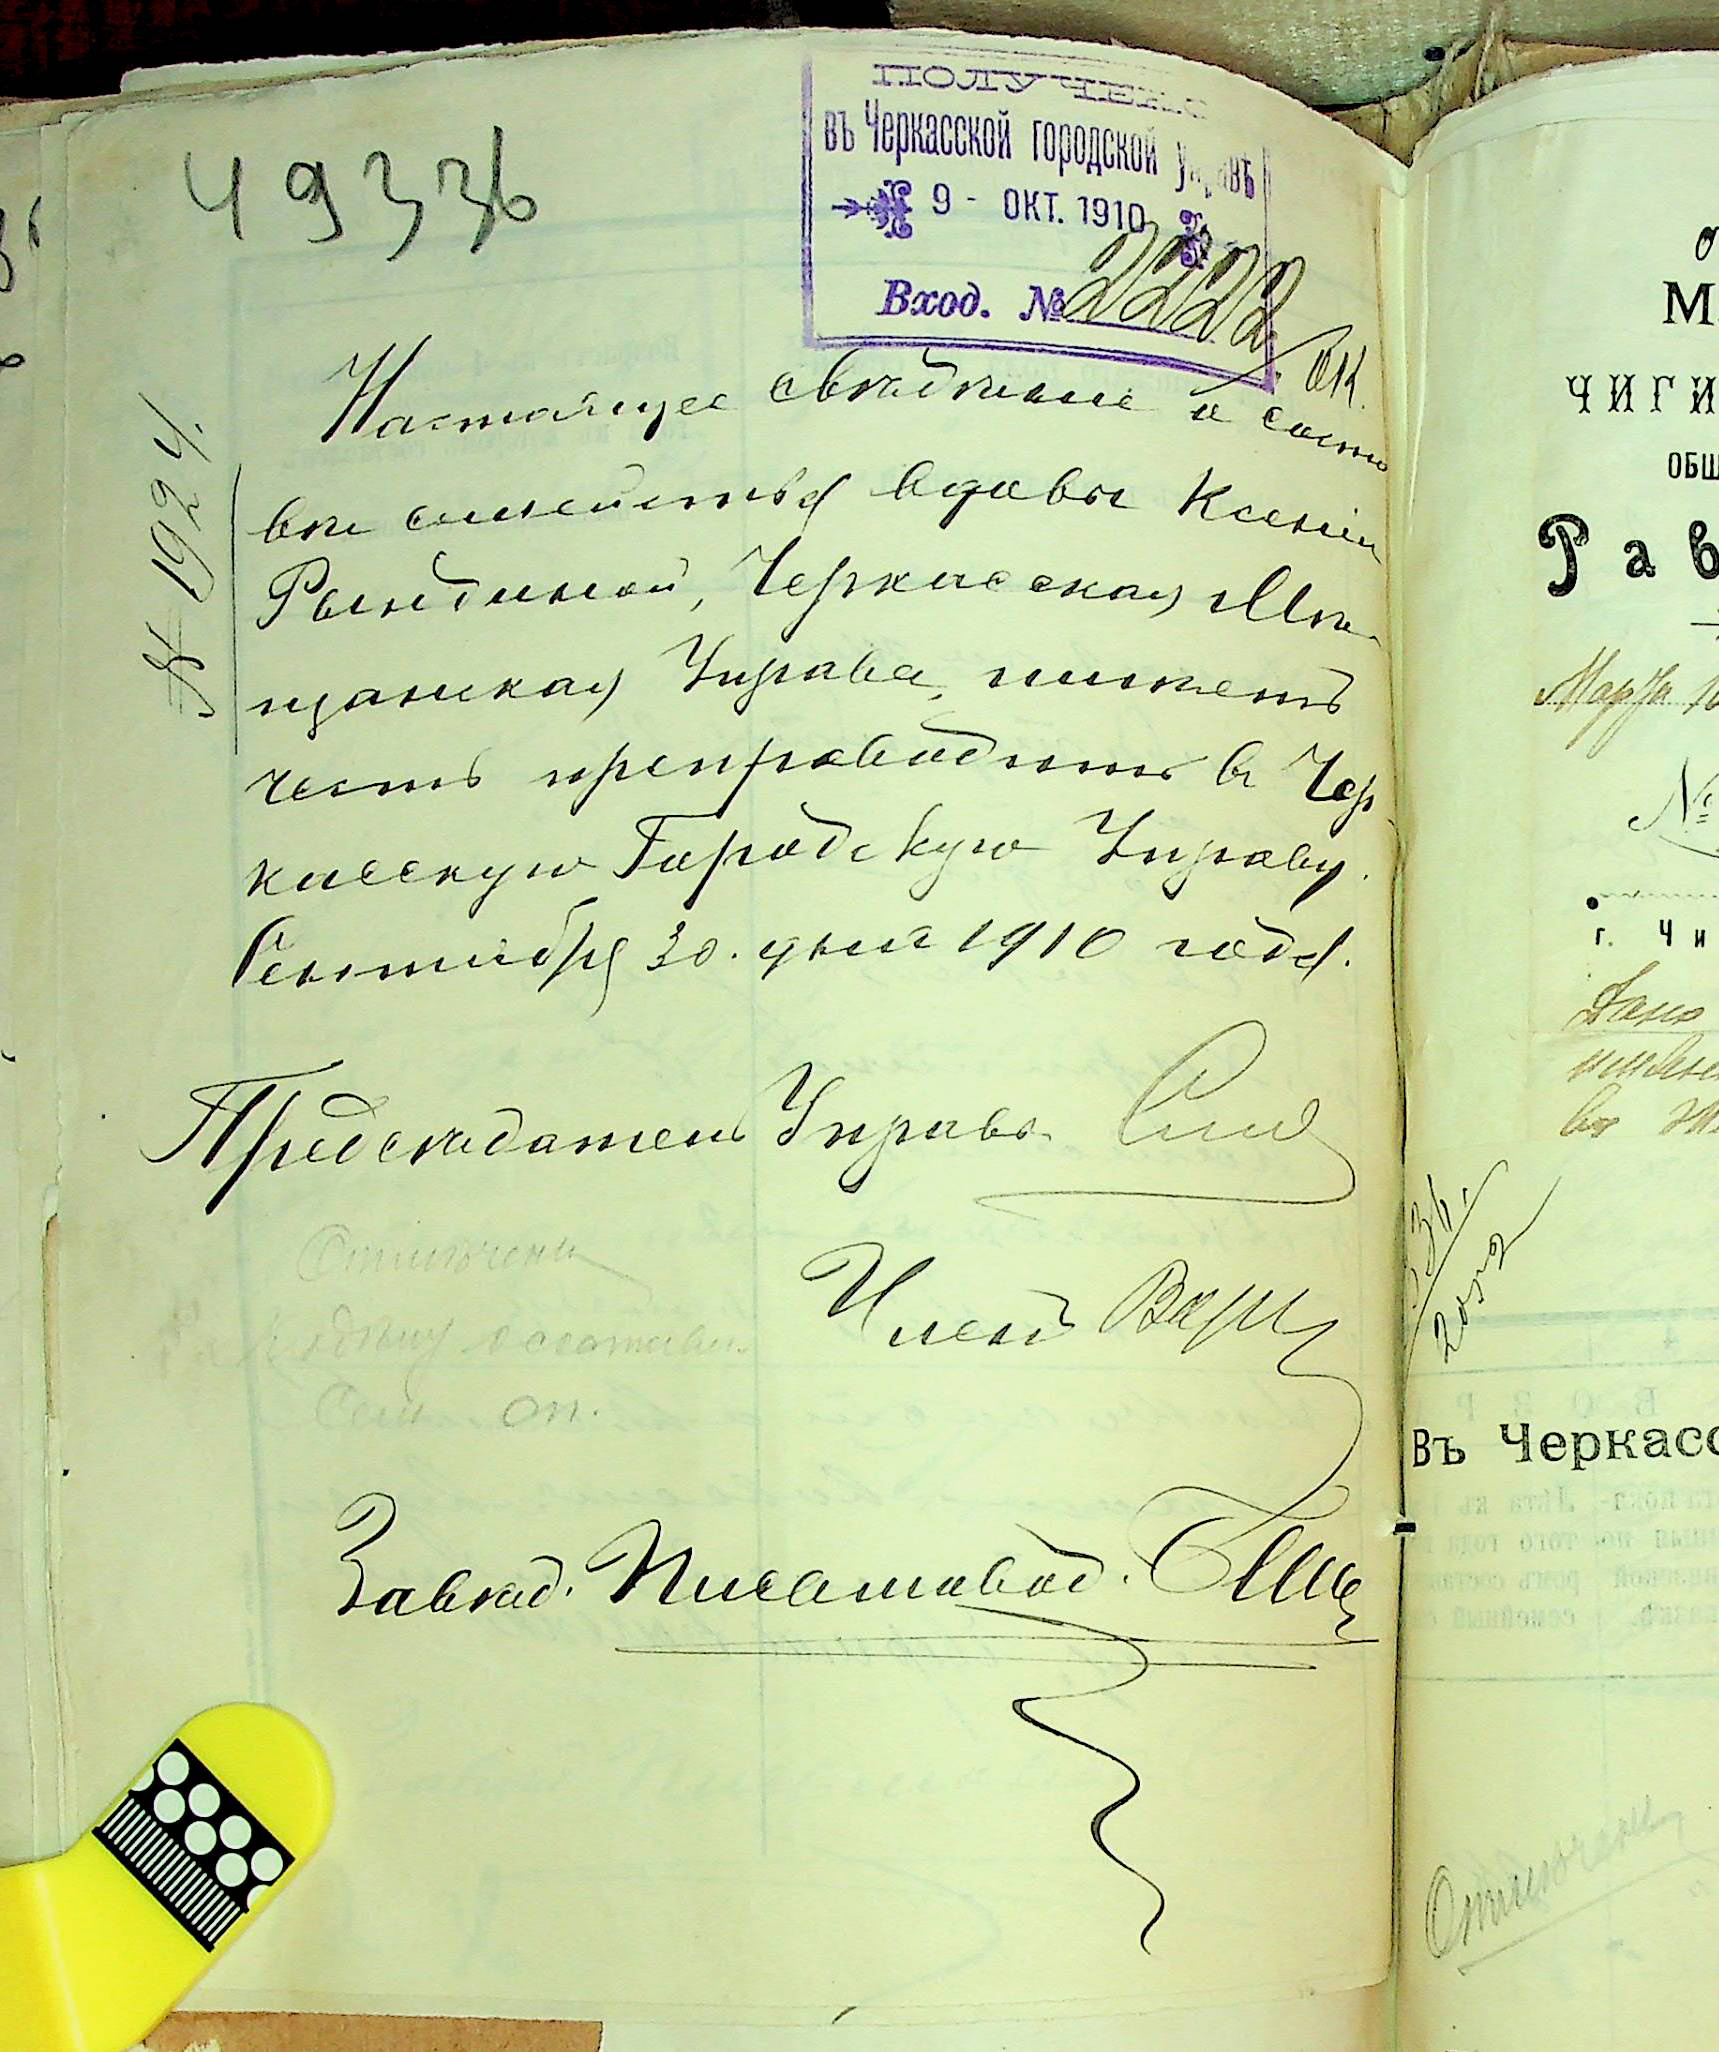 493 зв
ПОЛУЧЕНО
въ Черкасской городской управѣ
9 - ОКТ. 1910
Вход. № 2222
ОК.
№ 1924.
Настоящее свѣдѣніе о соста
вѣ семейства вдовы Ксеніи
Рындиной, Черкасская Мѣ-
щанская Управа, имѣетъ
честь препроводить въ Чер
касскую Городскую Управу.
Сентября 30. дня 1910 года.
Предсѣдатель Управы
Членъ
Завѣд. Письмовод.
Отмѣчена
о составѣ
Сем оп.
М
ЧИГИ
ОБЩ
Рав
Марта
№
г. Чи
Дано
въ
Въ Черкасс
Отмѣчена